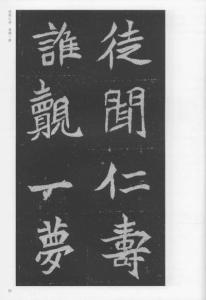 徒聞仁壽
誰覿丁夢